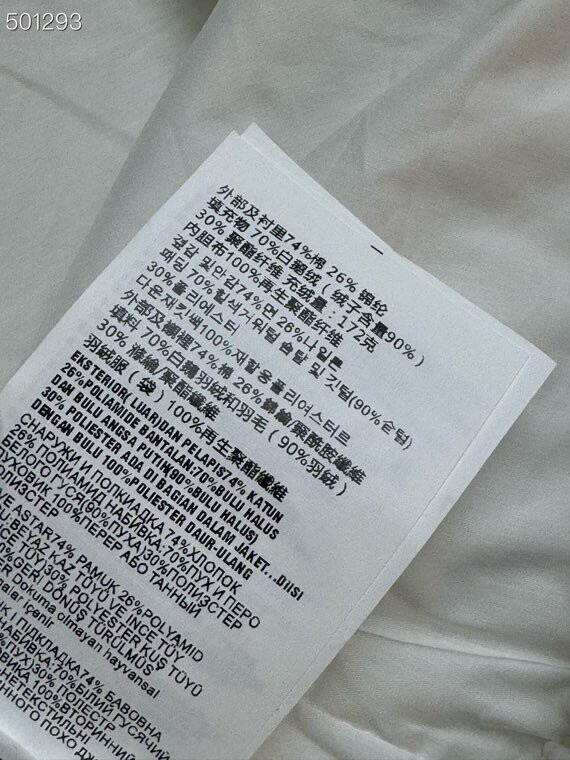 501293
外部及衬里74%棉 26% 锦纶
填充物 70%白鹅绒 ( 绒子含量90% )
30% 聚酯纤维 充绒量 : 172克
内胆布100%再生聚酯纤维
겉감 및안감74%면 26%나일론
패딩 70%흰색거위털 솜털 및 깃털(90%솜털)
30%폴리에스터
다운재킷백100%재활용폴리에스터르
外部及襯裡74%棉 26%錦綸/聚酰胺纖維
填料 70%白鵝羽絨和羽毛 ( 90%羽絨 )
30% 滌綸/聚酯纖維
羽絨服 ( 袋 ) 100%再生聚酯纖維
EKSTERIOR(LUAR)DAN PELAPIS74% KATUN
26%POLIAMIDE BANTALAN:70%BULU HALUS
DAN BULU ANGSA PUTIH(90%BULU HALUS)
30% POLIESTER ADA DI BAGIAN DALAM JAKET...DIISI
DENGAN BULU 100%POLIESTER DAUR-ULANG
СНАРУЖИ И ПОЛКИАДКА 74%ХЛОПОК
26% ПОЛИАМИД НАБИВКА:70%ПУХ И ПЕРО
БЕЛОГО ГУСЯ(90%ПУХА)30%ПОЛИЭСТЕР
УХОВИК 100%ПЕРЕР АБО ТАННЫЙ
ЛИЭСТЕР
VE ASTAR74% PAMUK 26%POLYAMID
BEYAZ KAZ TÜYÜ VE İNCE TÜY
TÜY)30% POLYESTER KUŞ TÜYÜ
GERİ DÖNÜŞ TÜRÜLMÜŞ
er Dokuma olmayan hayvansal
malar içerir
І ПІДКЛАДКА74% БАВОВНА
НАБИВКА:70%БІЛИЙ ГУСЯЧИЙ
ПУХ)30% ПОЛІЕСТР
100%ВТОРИННИЙ
ТЕКСТИЛЬНІ
ПОХО ДЖ